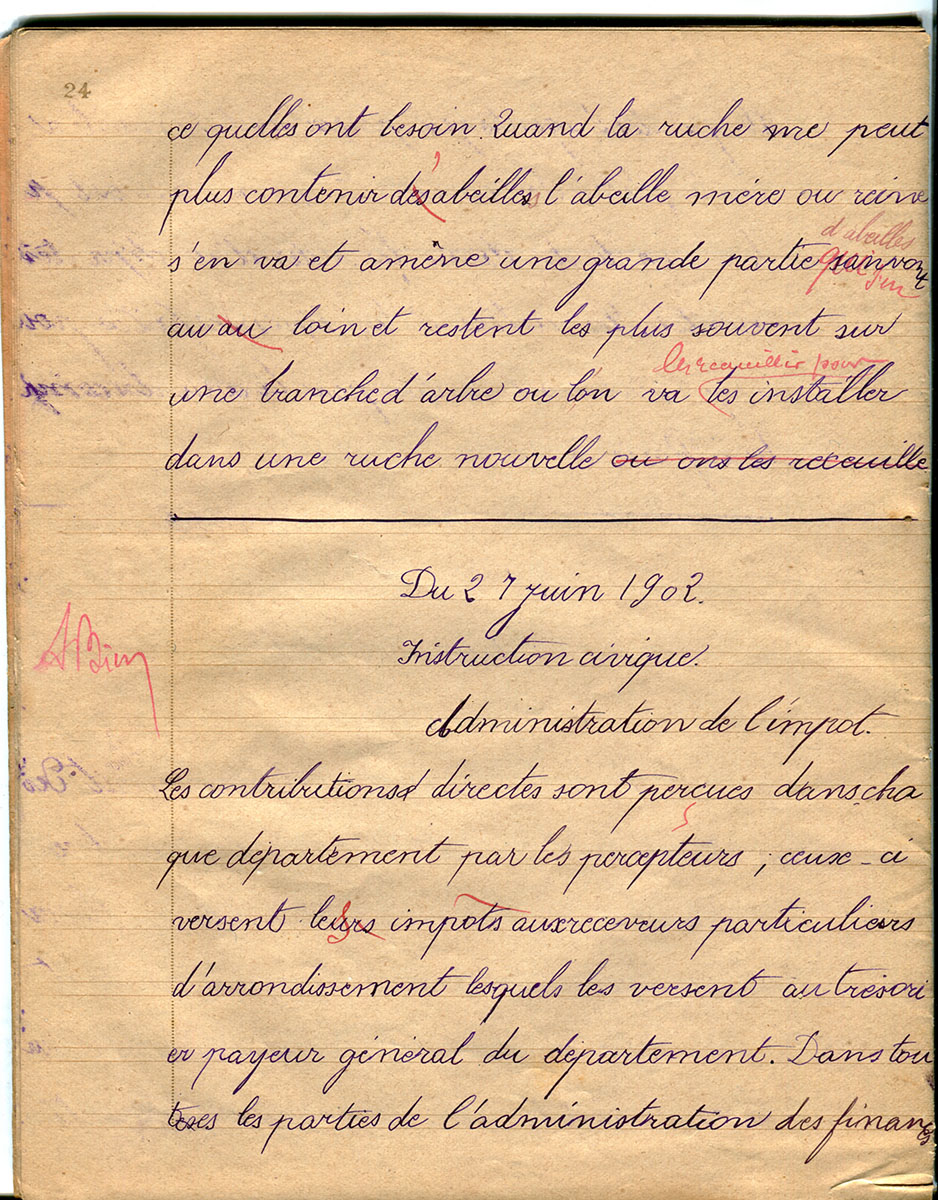 24
ce quelles ont besoin. Quand la ruche ne peut
plus contenir des abeilles l'abeille mére ou reine
d'abeilles
s'en va et amène une grande partie qui s'en vont
au au loin et restent les plus souvent sur
les recueillir pour
une branche d'árbre ou l'on va les installer
dans une ruche nouvelle ou ons les receuille
Du 27 juin 1902.
Instruction civique.
Administration de l'impot.
A Bien
Les contribritions directes sont percues dans cha
que département par les percepteurs ; ceux-ci
versent leurs impots aux receveurs particuliers
d'arrondissement lesquels les versent au trésori
er payeur général du département. Dans tou
tes les parties de l'administration des finances